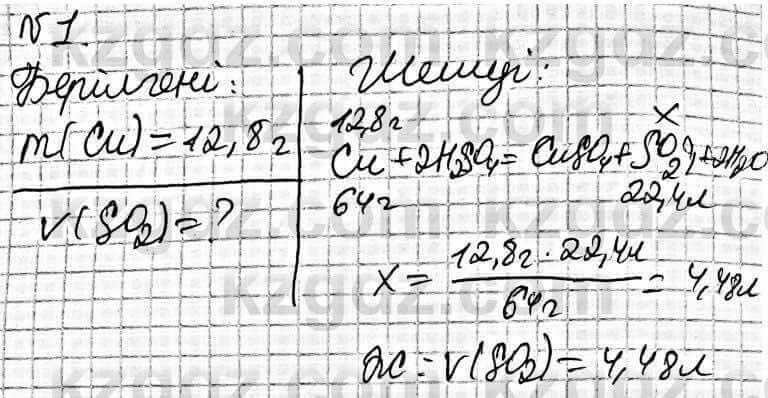 №1.
Берілгені:
m(Cu)=12,8г
V(SO2)=?
Шешуі:
12,8г x
Cu+2H2SO4=CuSO4+SO2↑+2H2O
64г 22,4л
x = 12,8г · 22,4л / 64г = 4,48л
Ж: V(SO2)=4,48л
kzgdz.com kzgdz.com